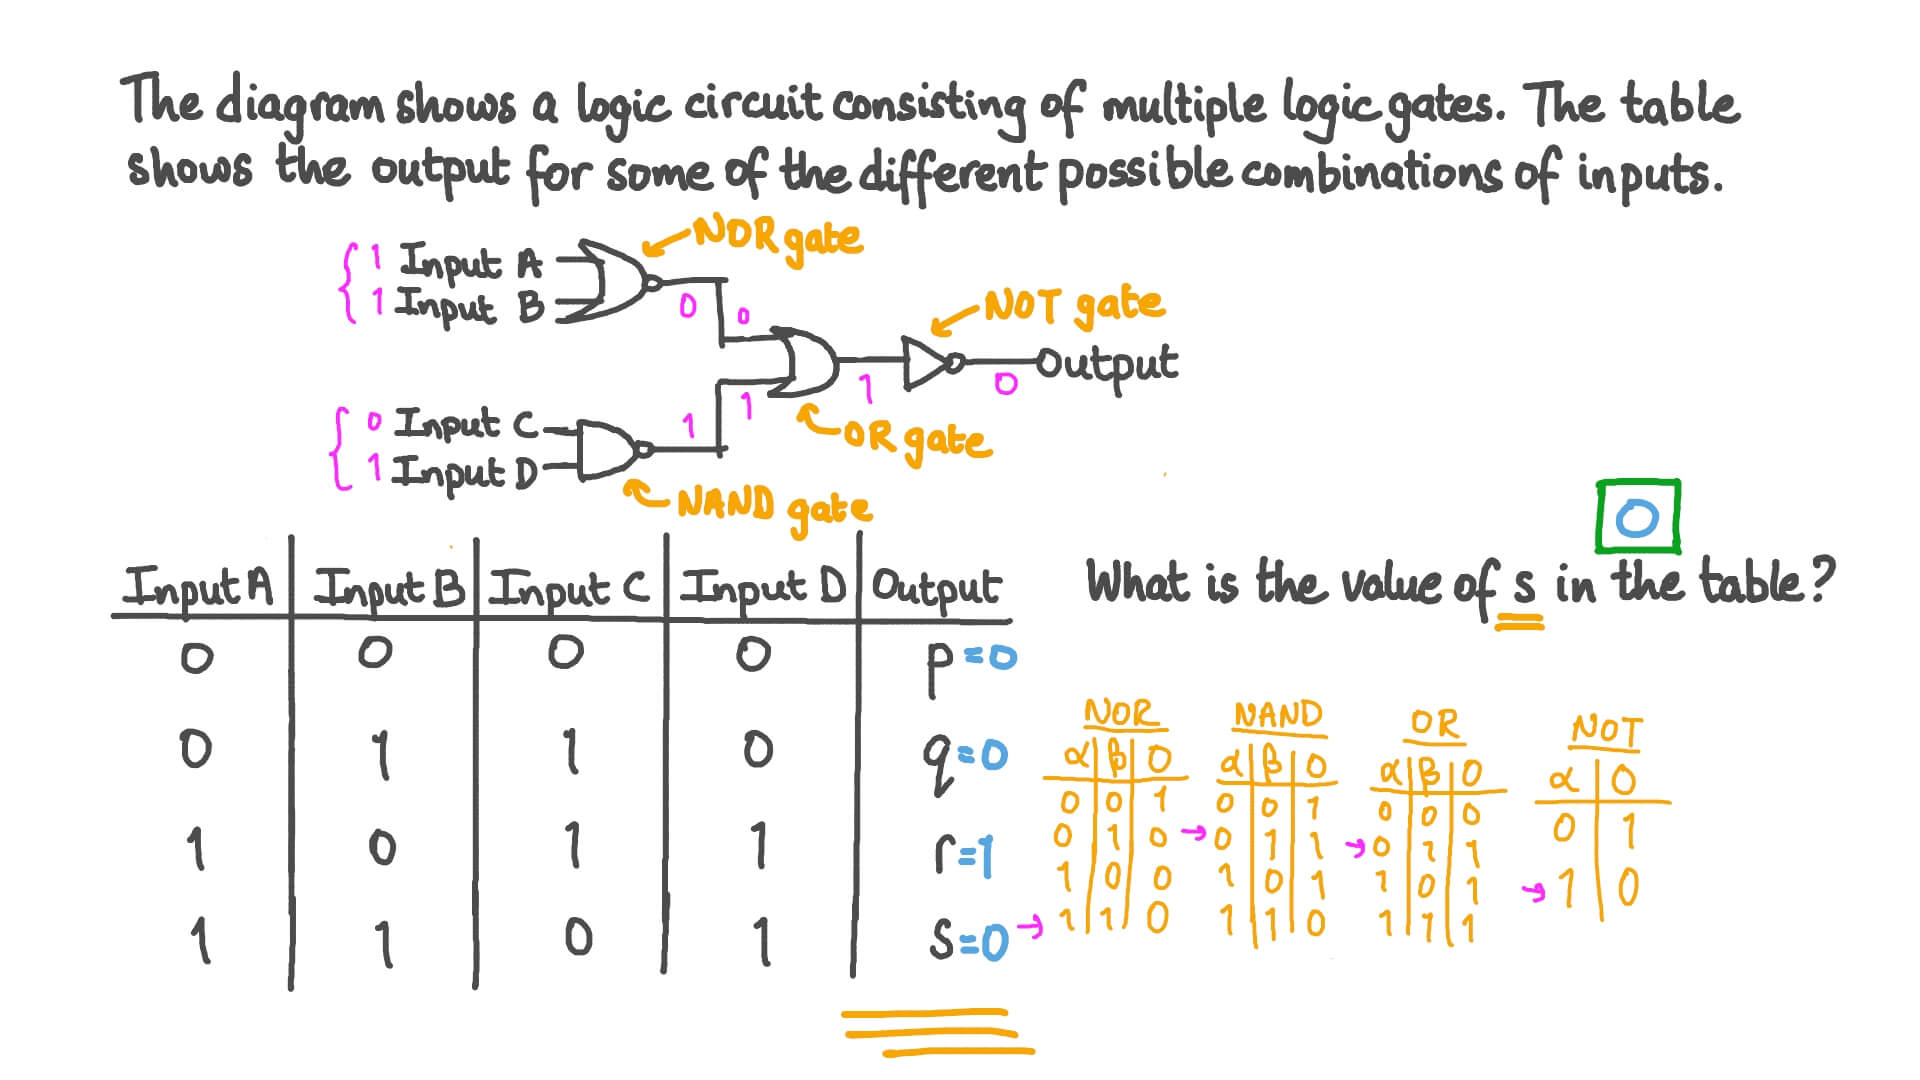 The diagram shows a logic circuit consisting of multiple logic gates. The table
shows the output for some of the different possible combinations of inputs.
NOR gate
1 Input A
1 Input B
0 0
NOT gate
Output
1 0
0 Input C
1 Input D
1 1
OR gate
NAND gate
0
What is the value of s in the table?
Input A Input B Input C Input D Output
0 0 0 0 p=0
0 1 1 0 q=0
1 0 1 1 r=1
1 1 0 1 s=0
NOR
α β 0
0 0 1
0 1 0
1 0 0
→ 1 1 0
NAND
α β 0
0 0 1
→ 0 1 1
1 0 1
1 1 0
OR
α β 0
0 0 0
→ 0 1 1
1 0 1
1 1 1
NOT
α 0
0 1
→ 1 0